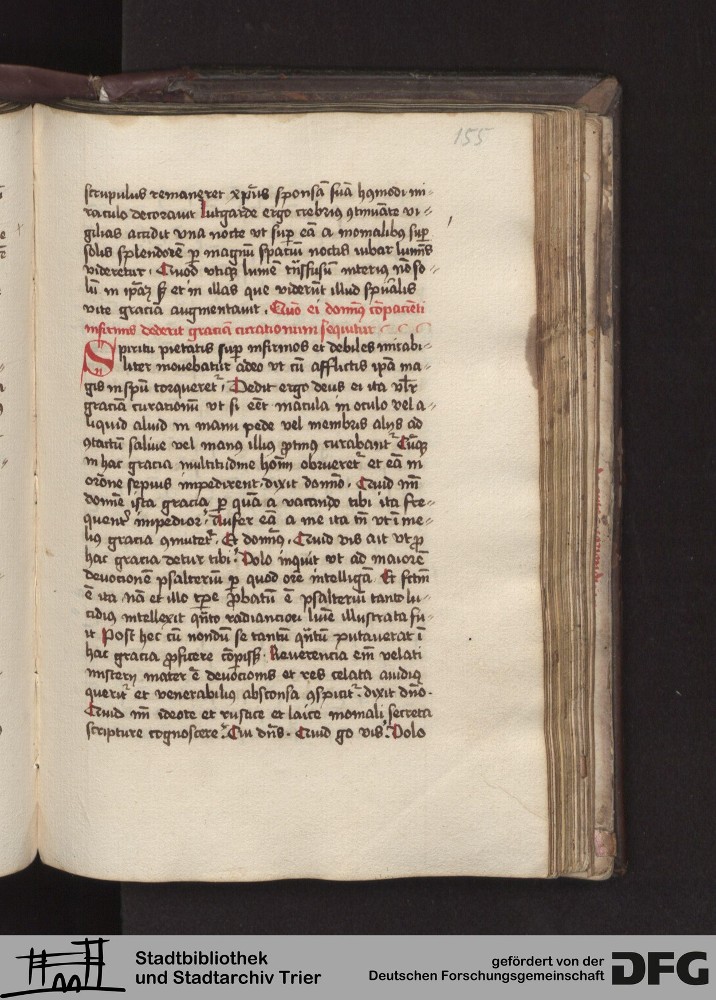 155
scrupulus remaneret xp̄us sponsā suā hꝰmodi mi⸗
raculo decorauit Lutgarde ergo crebriꝰ ꝯtinuāte vi⸗
gilias accidit vna nocte vt suꝑ eā a monialibꝰ suꝑ
solis splendorē ꝑ magnū spaciū noctis iubar lumīs
videretur. Quod vtiqꝫ lumē trāsfusum interiꝰ nō so⸗
lū in ip̄aꝫ sꝫ et in illas que viderūt illud spūalis
vite graciā augmentauit. Quō ei domīꝰ cōpaciēti
infirmis dederit graciā curationum sequitur
Spiritu pietatis suꝑ infirmos et debiles mirabi⸗
liter mouebatur adeo vt cū afflictis ip̄a ma⸗
gis in spū torqueretᷣ. Dedit ergo deus ei ita vlr̄
graciā curationū vt si eēt macula in oculo vel a⸗
liquid aliud in manu pede vel membris alijs ad
ꝯtactū saliue vel manꝰ illiꝰ ꝓtinꝰ curabantᷣ Cūqꝫ
in hac gracia multitudine hoīm obrueretᷣ et eā in
orōne sepius impedirent. dixit domīo. Quid m̄
domīe ista gracia ꝑ quā a vacando tibi ita fre⸗
quentᷣ impedior. Aufer eā a me ita tn̄ vt in me⸗
liꝰ gracia ꝯmutetᷣ. Et domīꝰ. Quid vis ait vt ꝓ
hac gracia detur tibi. Volo inquit vt ad maiorē
deuocionē psalteriū ꝑ quod orē intelligā. Et fc̄m
ē ita nā et illo tꝑe ꝓbatū ē psalteriū tanto lu⸗
cidiꝰ intellexit qn̄to radianciori lum̄e illustrata fu⸗
it Post hec cū nondū se tantū qn̄tū putauerat ī
hac gracia ꝓficere cōpissꝫ. Reuerencia em̄ velati
misterij mater ē deuocionis et res celata auidiꝰ
queritᷣ et venerabiliꝰ absconsa ꝯspicitᷣ. dixit dn̄o.
Quid m̄ ideote et rustice et laice moniali secreta
scripture cognoscere. Cui dn̄s. Quid gͦ vis. Volo
Stadtbibliothek
und Stadtarchiv Trier
gefördert von der
Deutschen Forschungsgemeinschaft
DFG